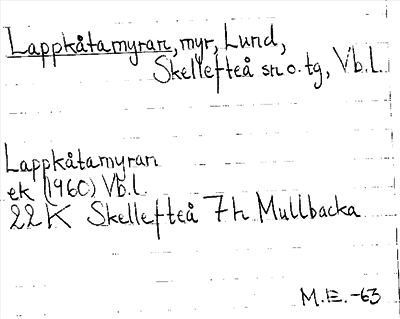 Lappkåtamyran, myr, Lund,
Skellefteå sn o. tg, Vb.l.
Lappkåtamyran
ek (1960) Vb.l
22K Skellefteå 7h Mullbacka
M.E.-63